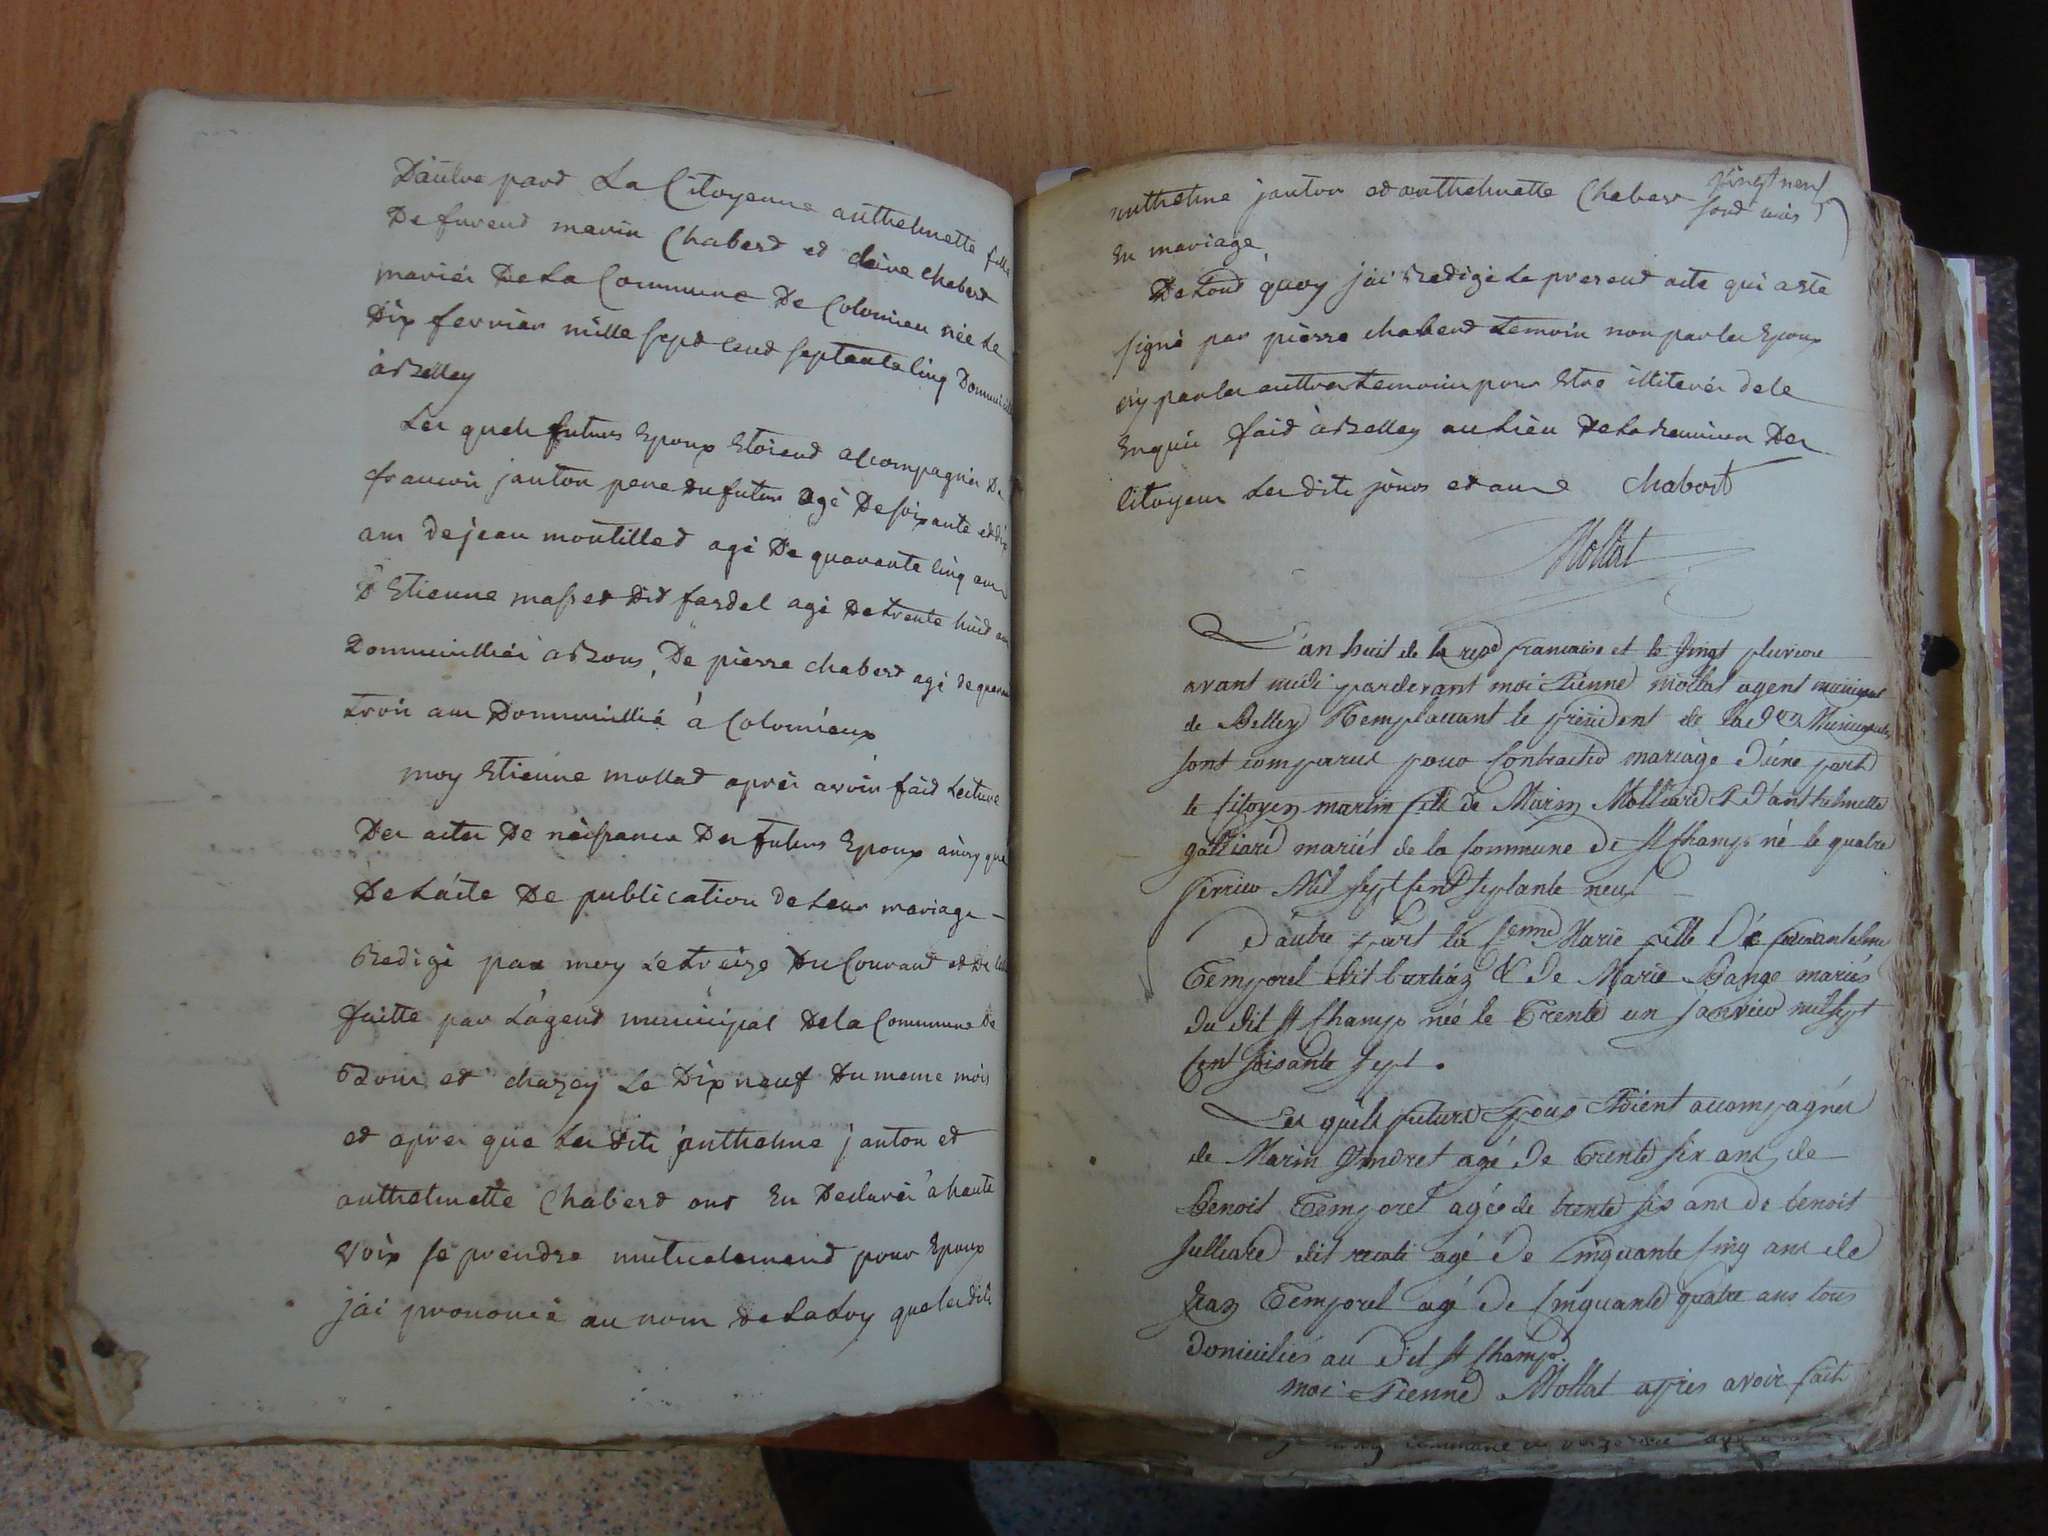 D'autre pard La Citoyenne anthelmette fille
De furend marin Chaberd et claire chaberd
mariés De La Commune De Colomieu née Le
Dix fevrier mille sept cend septante cinq Domicilié
à Belley
Les quels futurs Epoux Etoiend accompagnés De
francois janton pere du futur agé De soixante et dix
ans de jean montilled agé De quarante cinq ans
D Etienne masset Did fardel agé De trente huid ans
Dommicilliés à Brons, De pierre chaberd agé de quarante
trois ans Dommicillié à Colomieux
moy Etienne mollad après avoir faid Lecture
Des actes De naissance Des futurs Epoux ainsy que
De L'acte De publication de Leur mariage
Redigé par moy Le treize Du Courand et De celle
faitte par L'agend municipal De la Commune De
Bons et chazey Le Dix neuf Du meme mois
et apres que Les Dits anthelme janton et
anthelmette Chaberd ont Eu Declaré à haute
voix se prendre mutuelemend pour Epoux
j'ai prononcé au nom De La Loy que les dits
anthelme janton et anthelmette Chaberd sond unis
vingt neuf
En mariage
De toud quoy j'ai Redigé Le presend acte qui a été
signé par pierre chaberd temoin non par les Epoux
ny par les auttres temoins pour Etre illiterés de le
Enquis faid à Belley au Lieu De La Reunion Des
Citoyens Les dits jours et an Chabert
Mollat
L'an huit de la repd francaise et le vingt pluviose
avant midi pardevant moi Etienne Mollat agent municipal
de Belley Remplacant le président de l'adon Municipale
sont comparus pour Contracter mariage d'une part
le Citoyen martin fils de Marin Molliard & d'anthelmette
galliard mariés de la Commune de St Champ né le quatre
fevrier Mil Sept Cent Septante neuf
d'autre part la Cenne Marie fille de anthelme
Temporel dit & de Marie Bange mariés
du dit St Champ née le Trente un janvier mil sept
Cent soisante sept.
Les quels futurs Epoux Etoient accompagnés
de Marin agé de Trente six ans, de
Benoit Temporel agé de trente six ans de benoit
Julliard dit agé de Cinquante cinq ans de
Jean Temporel agé de Cinquante quatre ans tous
domiciliés au dit St Champ
moi Etienne Mollat apres avoir fait